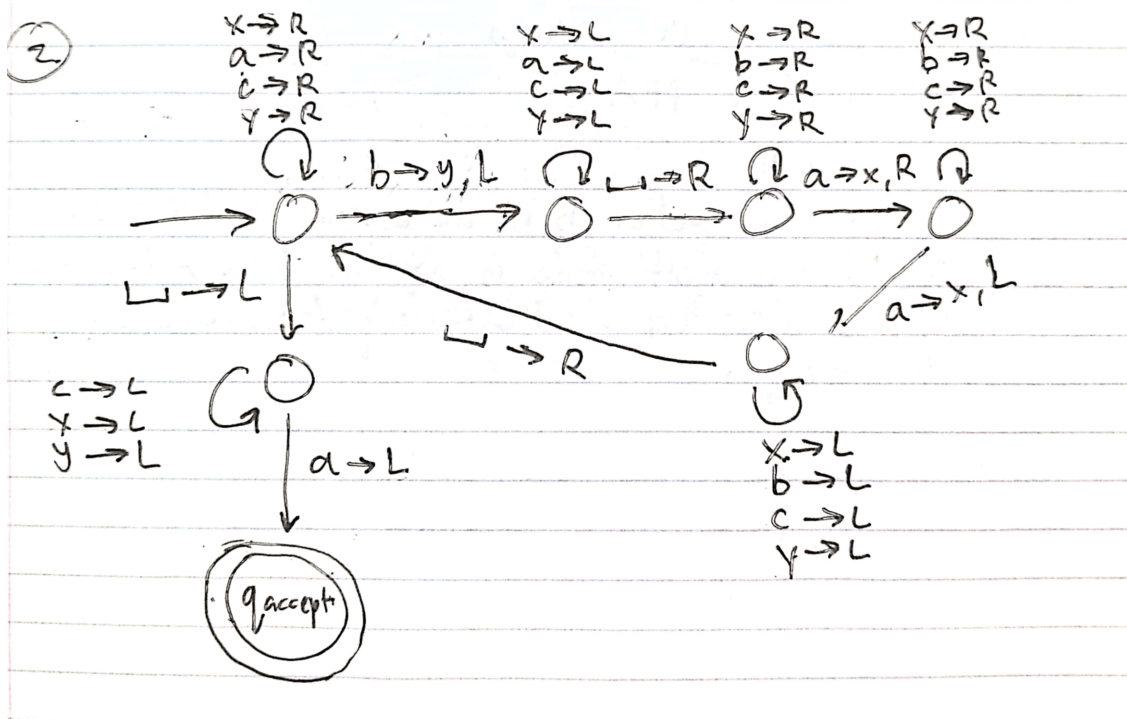 2
x → R
a → R
c → R
y → R
x → L
a → L
c → L
y → L
x → R
b → R
c → R
y → R
x → R
b → R
c → R
y → R
b → y, L
⊔ → R
a → x, R
⊔ → L
a → x, L
⊔ → R
c → L
x → L
y → L
a → L
x → L
b → L
c → L
y → L
q accept